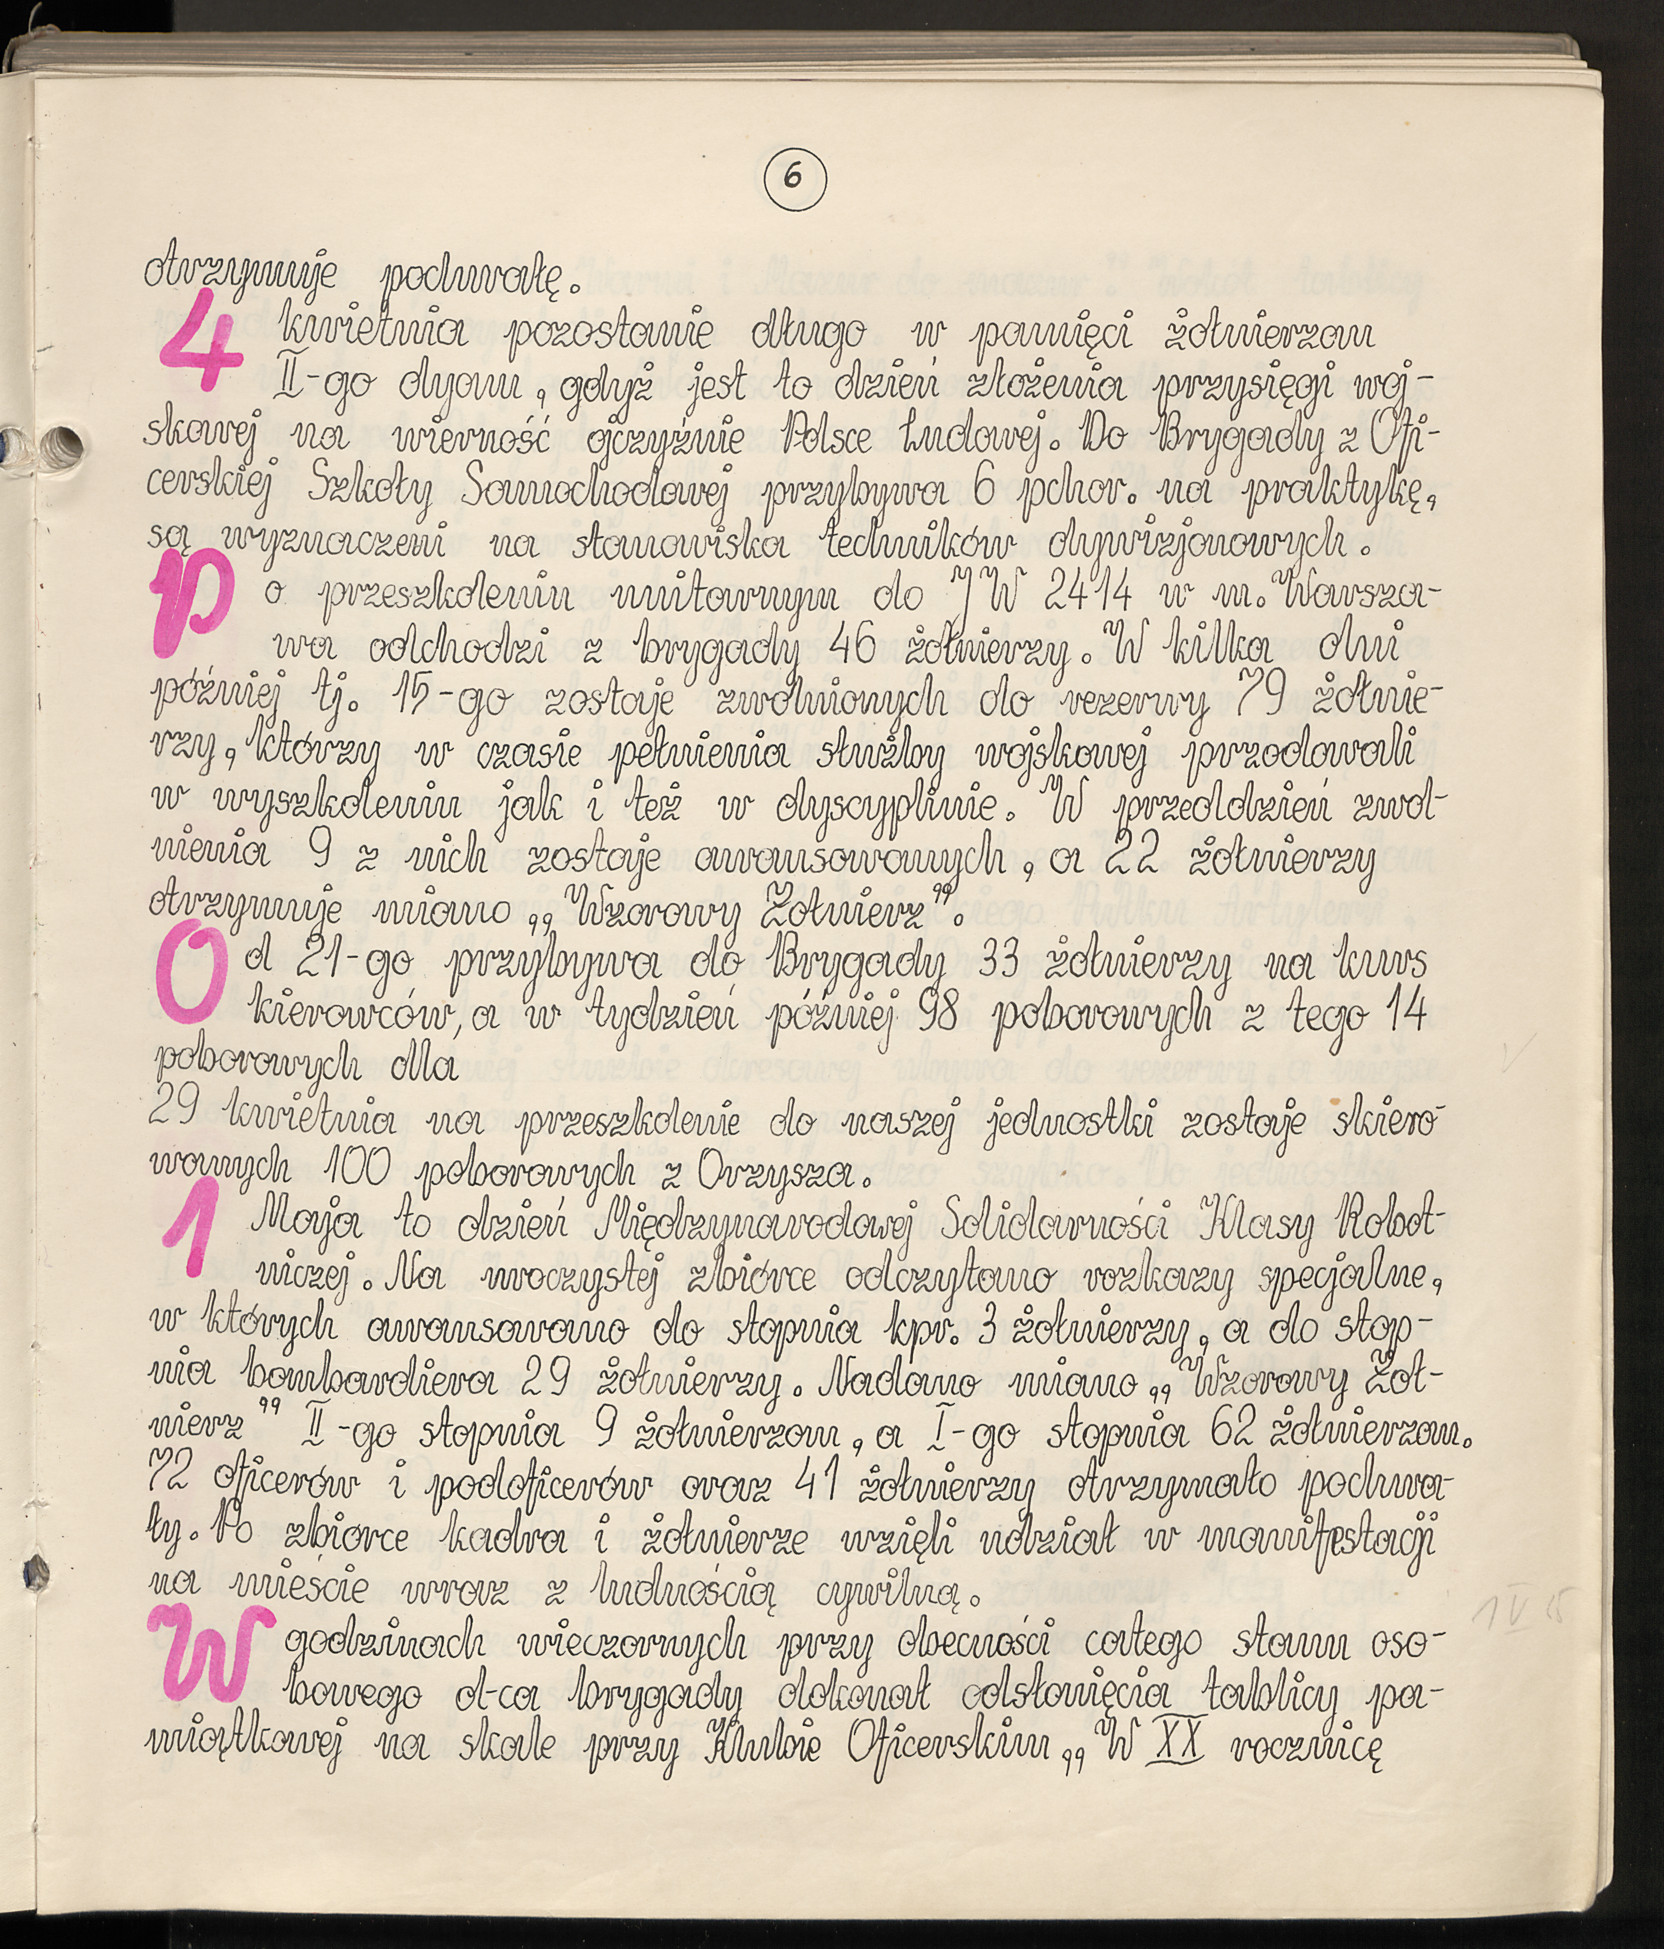 6
otrzymuje pochwałę.
4 kwietnia pozostanie długo w pamięci żołnierzom
II-go dyonu, gdyż jest to dzień złożenia przysięgi woj-
skowej na wierność ojczyźnie Polsce Ludowej. Do Brygady z Ofi-
cerskiej Szkoły Samochodowej przybywa 6 pchor. na praktykę,
są wyznaczeni na stanowiska techników dywizjonowych.
Po przeszkoleniu unitarnym do JW 2414 w m. Warsza-
wa odchodzi z brygady 46 żołnierzy. W kilka dni
później tj. 15-go zostaje zwolnionych do rezerwy 79 żołnie-
rzy, którzy w czasie pełnienia służby wojskowej przodowali
w wyszkoleniu jak i też w dyscyplinie. W przeddzień zwol-
nienia 9 z nich zostaje awansowanych, a 22 żołnierzy
otrzymuje miano „Wzorowy Żołnierz”.
Od 21-go przybywa do Brygady 33 żołnierzy na kurs
kierowców, a w tydzień później 98 poborowych z tego 14
poborowych dla
29 kwietnia na przeszkolenie do naszej jednostki zostaje skiero-
wanych 100 poborowych z Orzysza.
1 Maja to dzień Międzynarodowej Solidarności Klasy Robot-
niczej. Na uroczystej zbiórce odczytano rozkazy specjalne,
w których awansowano do stopnia kpr. 3 żołnierzy, a do stop-
nia bombardiera 29 żołnierzy. Nadano miano „Wzorowy Żoł-
nierz” II-go stopnia 9 żołnierzom, a I-go stopnia 62 żołnierzom.
72 oficerów i podoficerów oraz 41 żołnierzy otrzymało pochwa-
ły. Po zbiórce kadra i żołnierze wzięli udział w manifestacji
na mieście wraz z ludnością cywilną.
W godzinach wieczornych przy obecności całego stanu oso-
bowego d-ca brygady dokonał odsłonięcia tablicy pa-
miątkowej na skale przy Klubie Oficerskim „W XX rocznicę